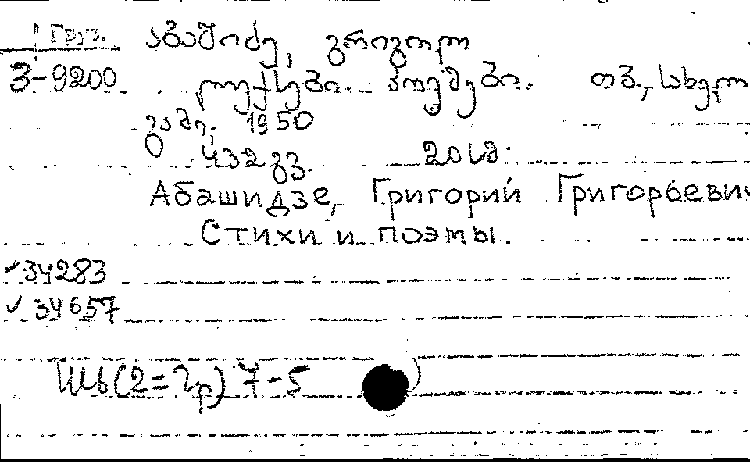 Груз. აბაშიძე, გრიგოლ
3-9200 ლექსები. პოემები. თბ., სახელ
გამი, 1950
432 გვ. 20 სმ.
Абашидзе, Григорий Григорьевич
Стихи и поэмы.
✓34283
✓34657
Шб(2=Гр) 7-5